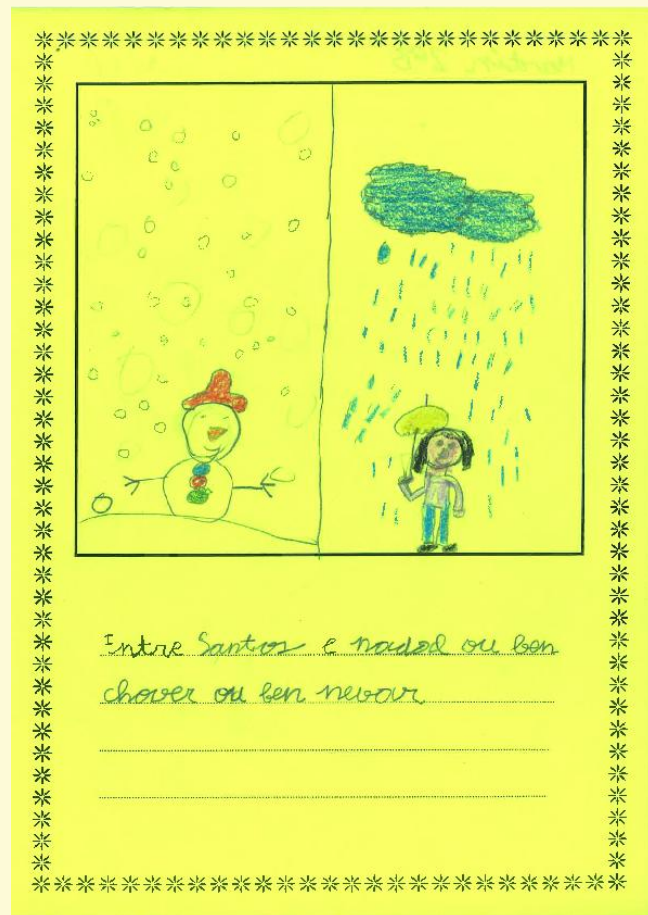 Intre Santos e nadad ou ben
chover ou ben nevar